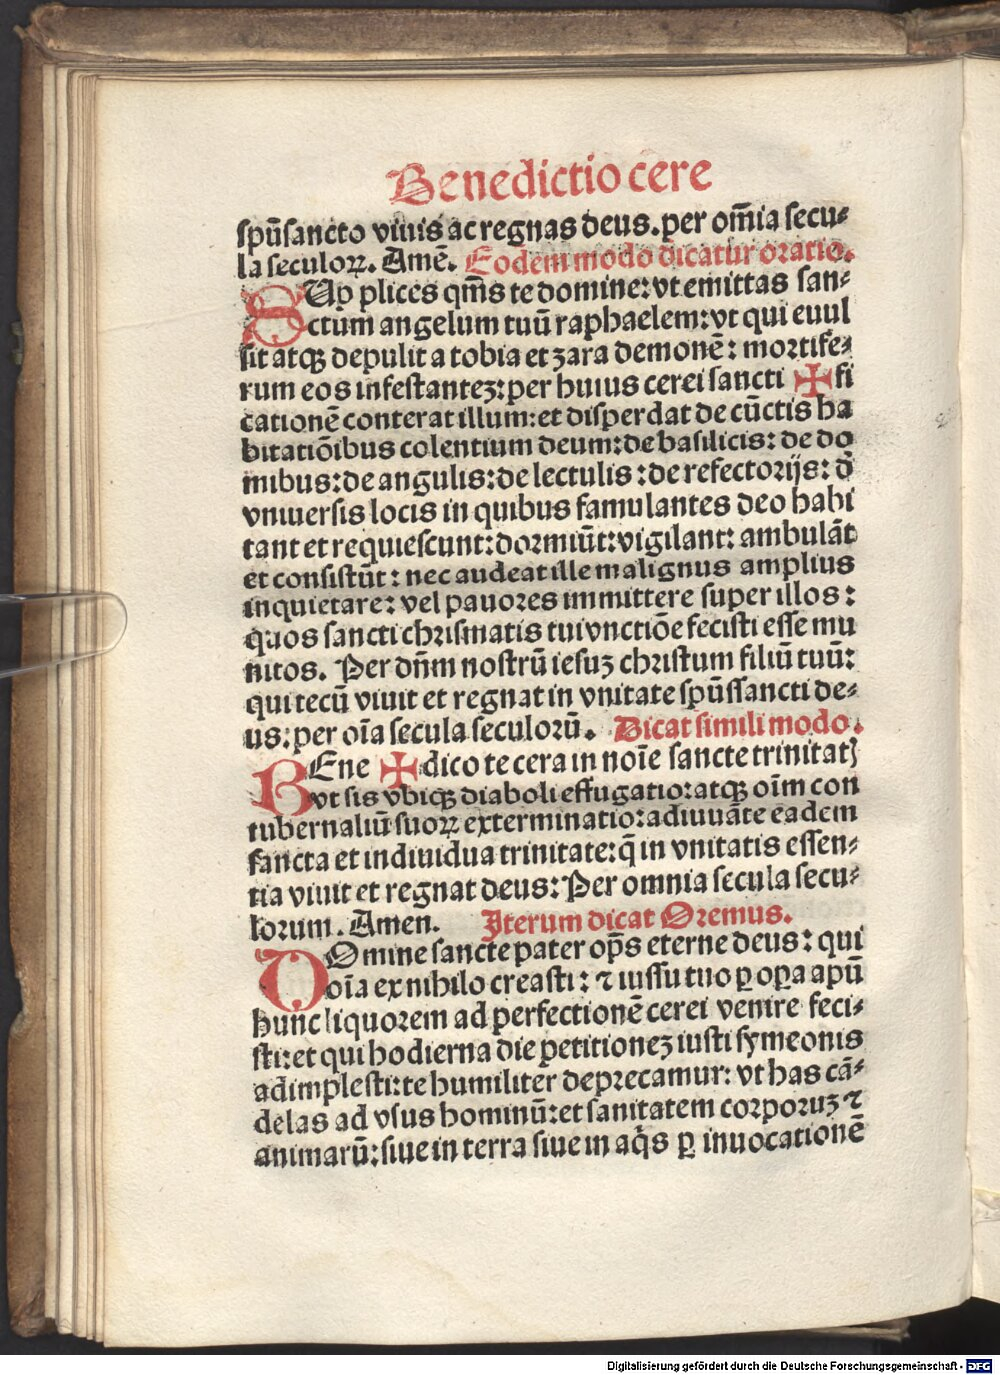 Benedictio cere
spūsancto viuis ac regnas deus. per om̄ia secu⸗
la seculoꝝ. Amē. Eodem modo dicatur oratio.
SUp plices qm̄s te domine: vt emittas san⸗
ctum angelum tuū raphaelem: vt qui euul
sit atqꝫ depulit a tobia et zara demonē: mortife⸗
rum eos infestanteꝫ: per huius cerei sancti ✠ fi
cationē conterat illum: et disperdat de cūctis ha
bitatiōibus colentium deum: de basilicis: de do
mibus: de angulis: de lectulis: de refectorijs: d̄
vniuersis locis in quibus famulantes deo habi
tant et requiescunt: dormiūt: vigilant: ambulāt
et consistūt: nec audeat ille malignus amplius
inquietare: vel pauores immittere super illos:
quos sancti chrismatis tui vnctiōe fecisti esse mu
nitos. Per dn̄m nostrū iesuꝫ christum filiū tuū:
qui tecū viuit et regnat in vnitate spūssancti de⸗
us: per oīa secula seculorū. Dicat simili modo.
BEne ✠ dico te cera in noīe sancte trinitatꝭ
vt sis vbiqꝫ diaboli effugatio: atqꝫ oīm con
tubernaliū suoꝝ exterminatio: adiuuāte eadem
sancta et indiuidua trinitate: q̄ in vnitatis essen⸗
tia viuit et regnat deus: Per omnia secula secu⸗
lorum. Amen. Iterum dicat Oremus.
DOmine sancte pater op̄s eterne deus: qui
oīa ex nihilo creasti: ⁊ iussu tuo ꝑ oꝑa apū
hunc liquorem ad perfectionē cerei venire feci⸗
sti: et qui hodierna die petitioneꝫ iusti symeonis
adimplesti: te humiliter deprecamur: vt has cā⸗
delas ad vsus hominū: et sanitatem corporuꝫ ⁊
animarū: siue in terra siue in aq̄s ꝑ inuocationē
Digitalisierung gefördert durch die Deutsche Forschungsgemeinschaft - DFG